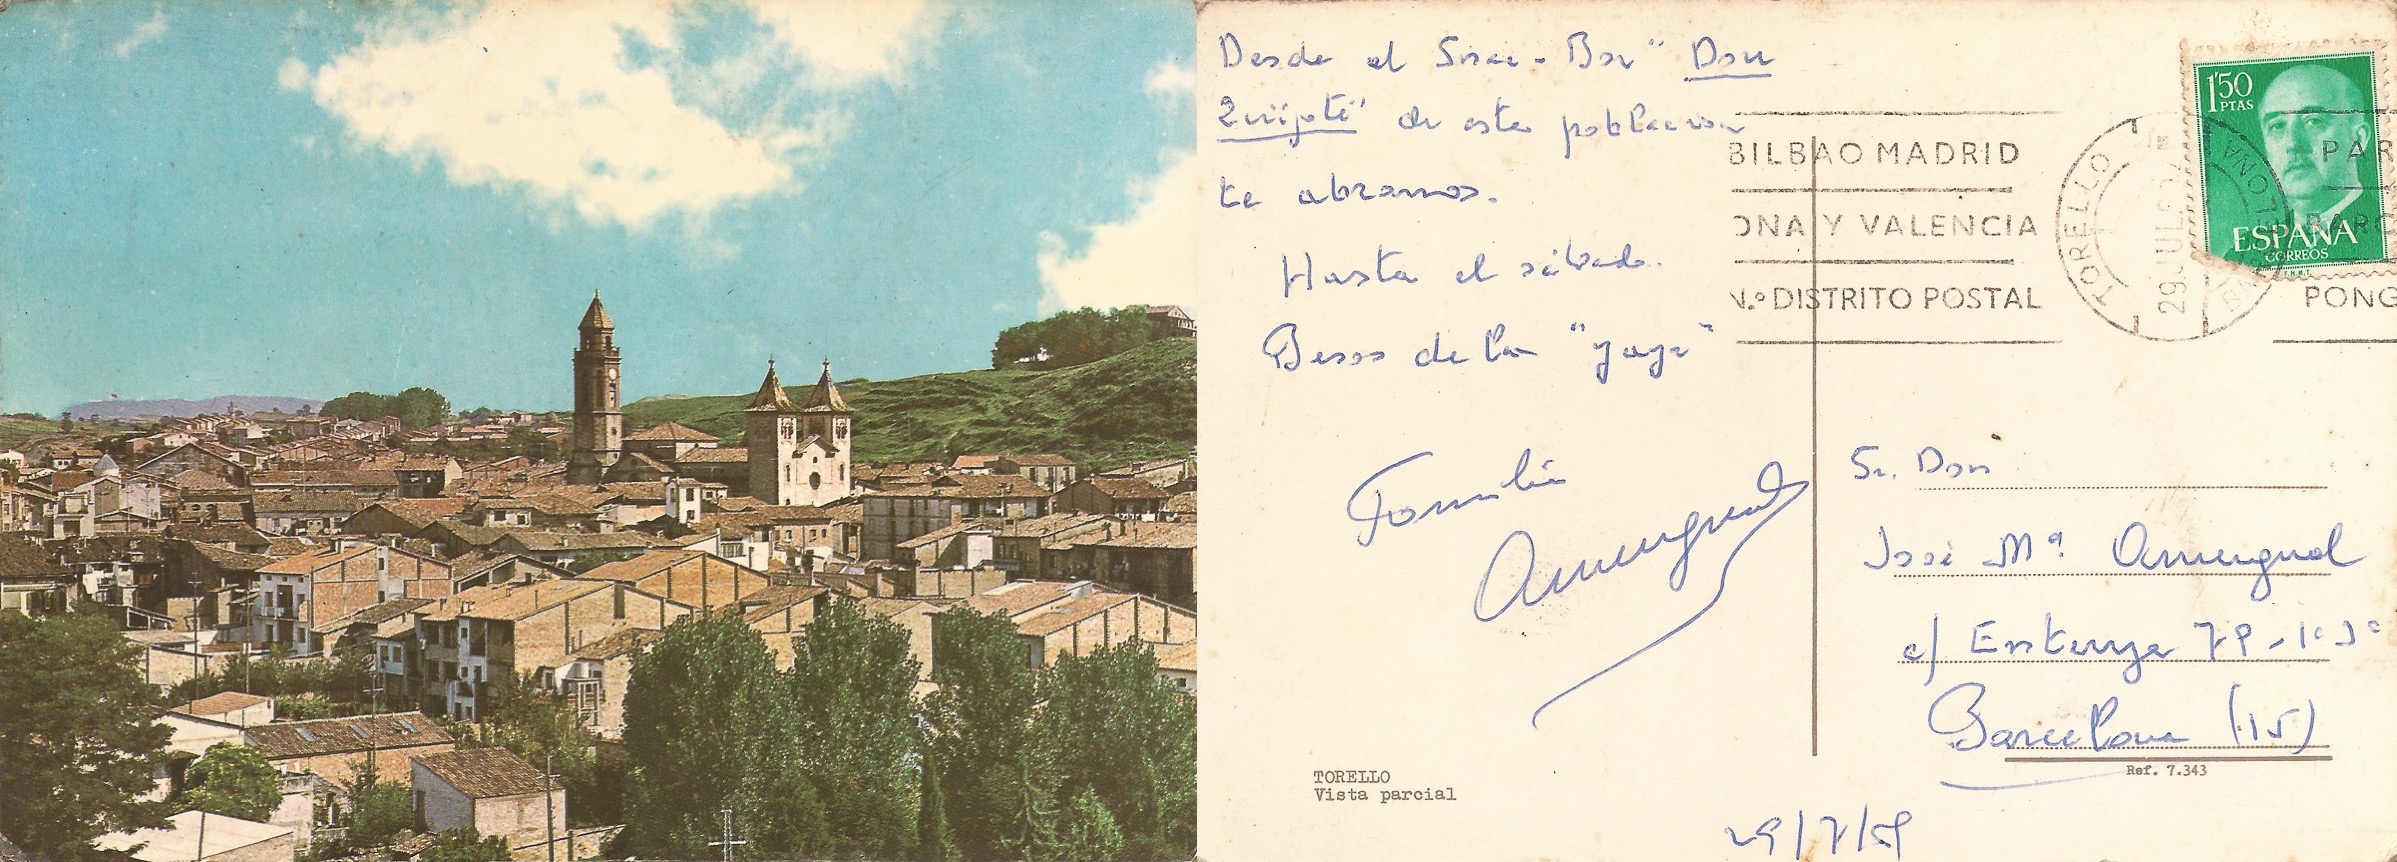 Desde el Snac-Bar "Don
Quijote" de esta población
te abramos.
Hasta el sábado.
Besos de la "yaya"
Familia
Amengual
TORELLO
Vista parcial
BILBAO MADRID
ONA Y VALENCIA
N.º DISTRITO POSTAL
TORELLO
29 JUL
1'50
PTAS
ESPAÑA
CORREOS
F.N.M.T.
PAR
BARC
PONG
Sr. Don
José Mª Amengual
c/ Entenza
Barcelona (15)
Ref. 7.343
29/7/